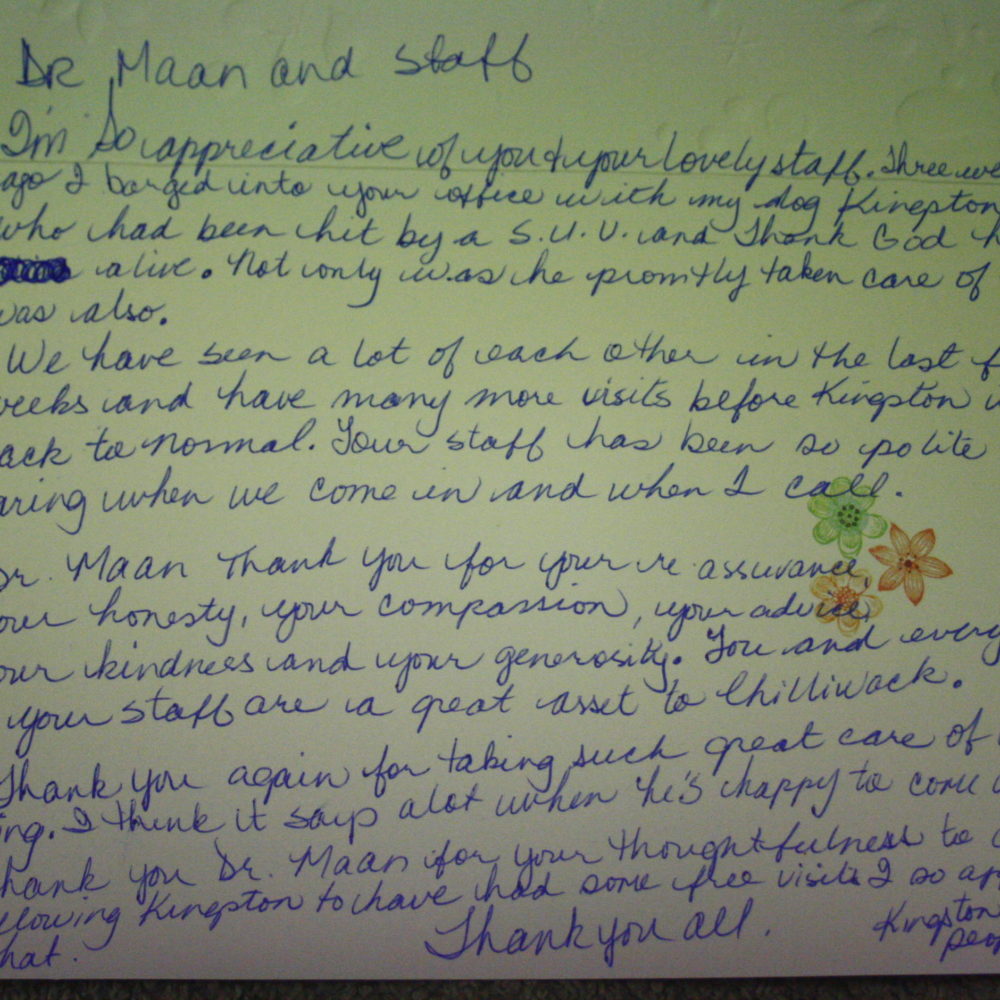 Dr Maan and Staff
I'm So appreciative of you & your lovely staff. Three
ago I barged into your office with my dog Kingston
who had been hit by a S.U.V. and Thank God
alive. Not only was he promtly taken care of
was also.
We have seen a lot of each other in the last
weeks and have many more visits before Kingston
back to normal. Your staff has been so polite
aring when we come in and when I call.
Dr. Maan Thank you for your re assurance,
our honesty, your compassion, your advice,
our kindness and your generosity. You and every
your staff are a great asset to Chilliwack.
Thank you again for taking such great care of
ing. I think it says alot when he's happy to come
hank you Dr. Maan for your thoughtfulness to
llowing Kingston to have had some free visits I so
hat.
Thank you all.
Kingston
peo